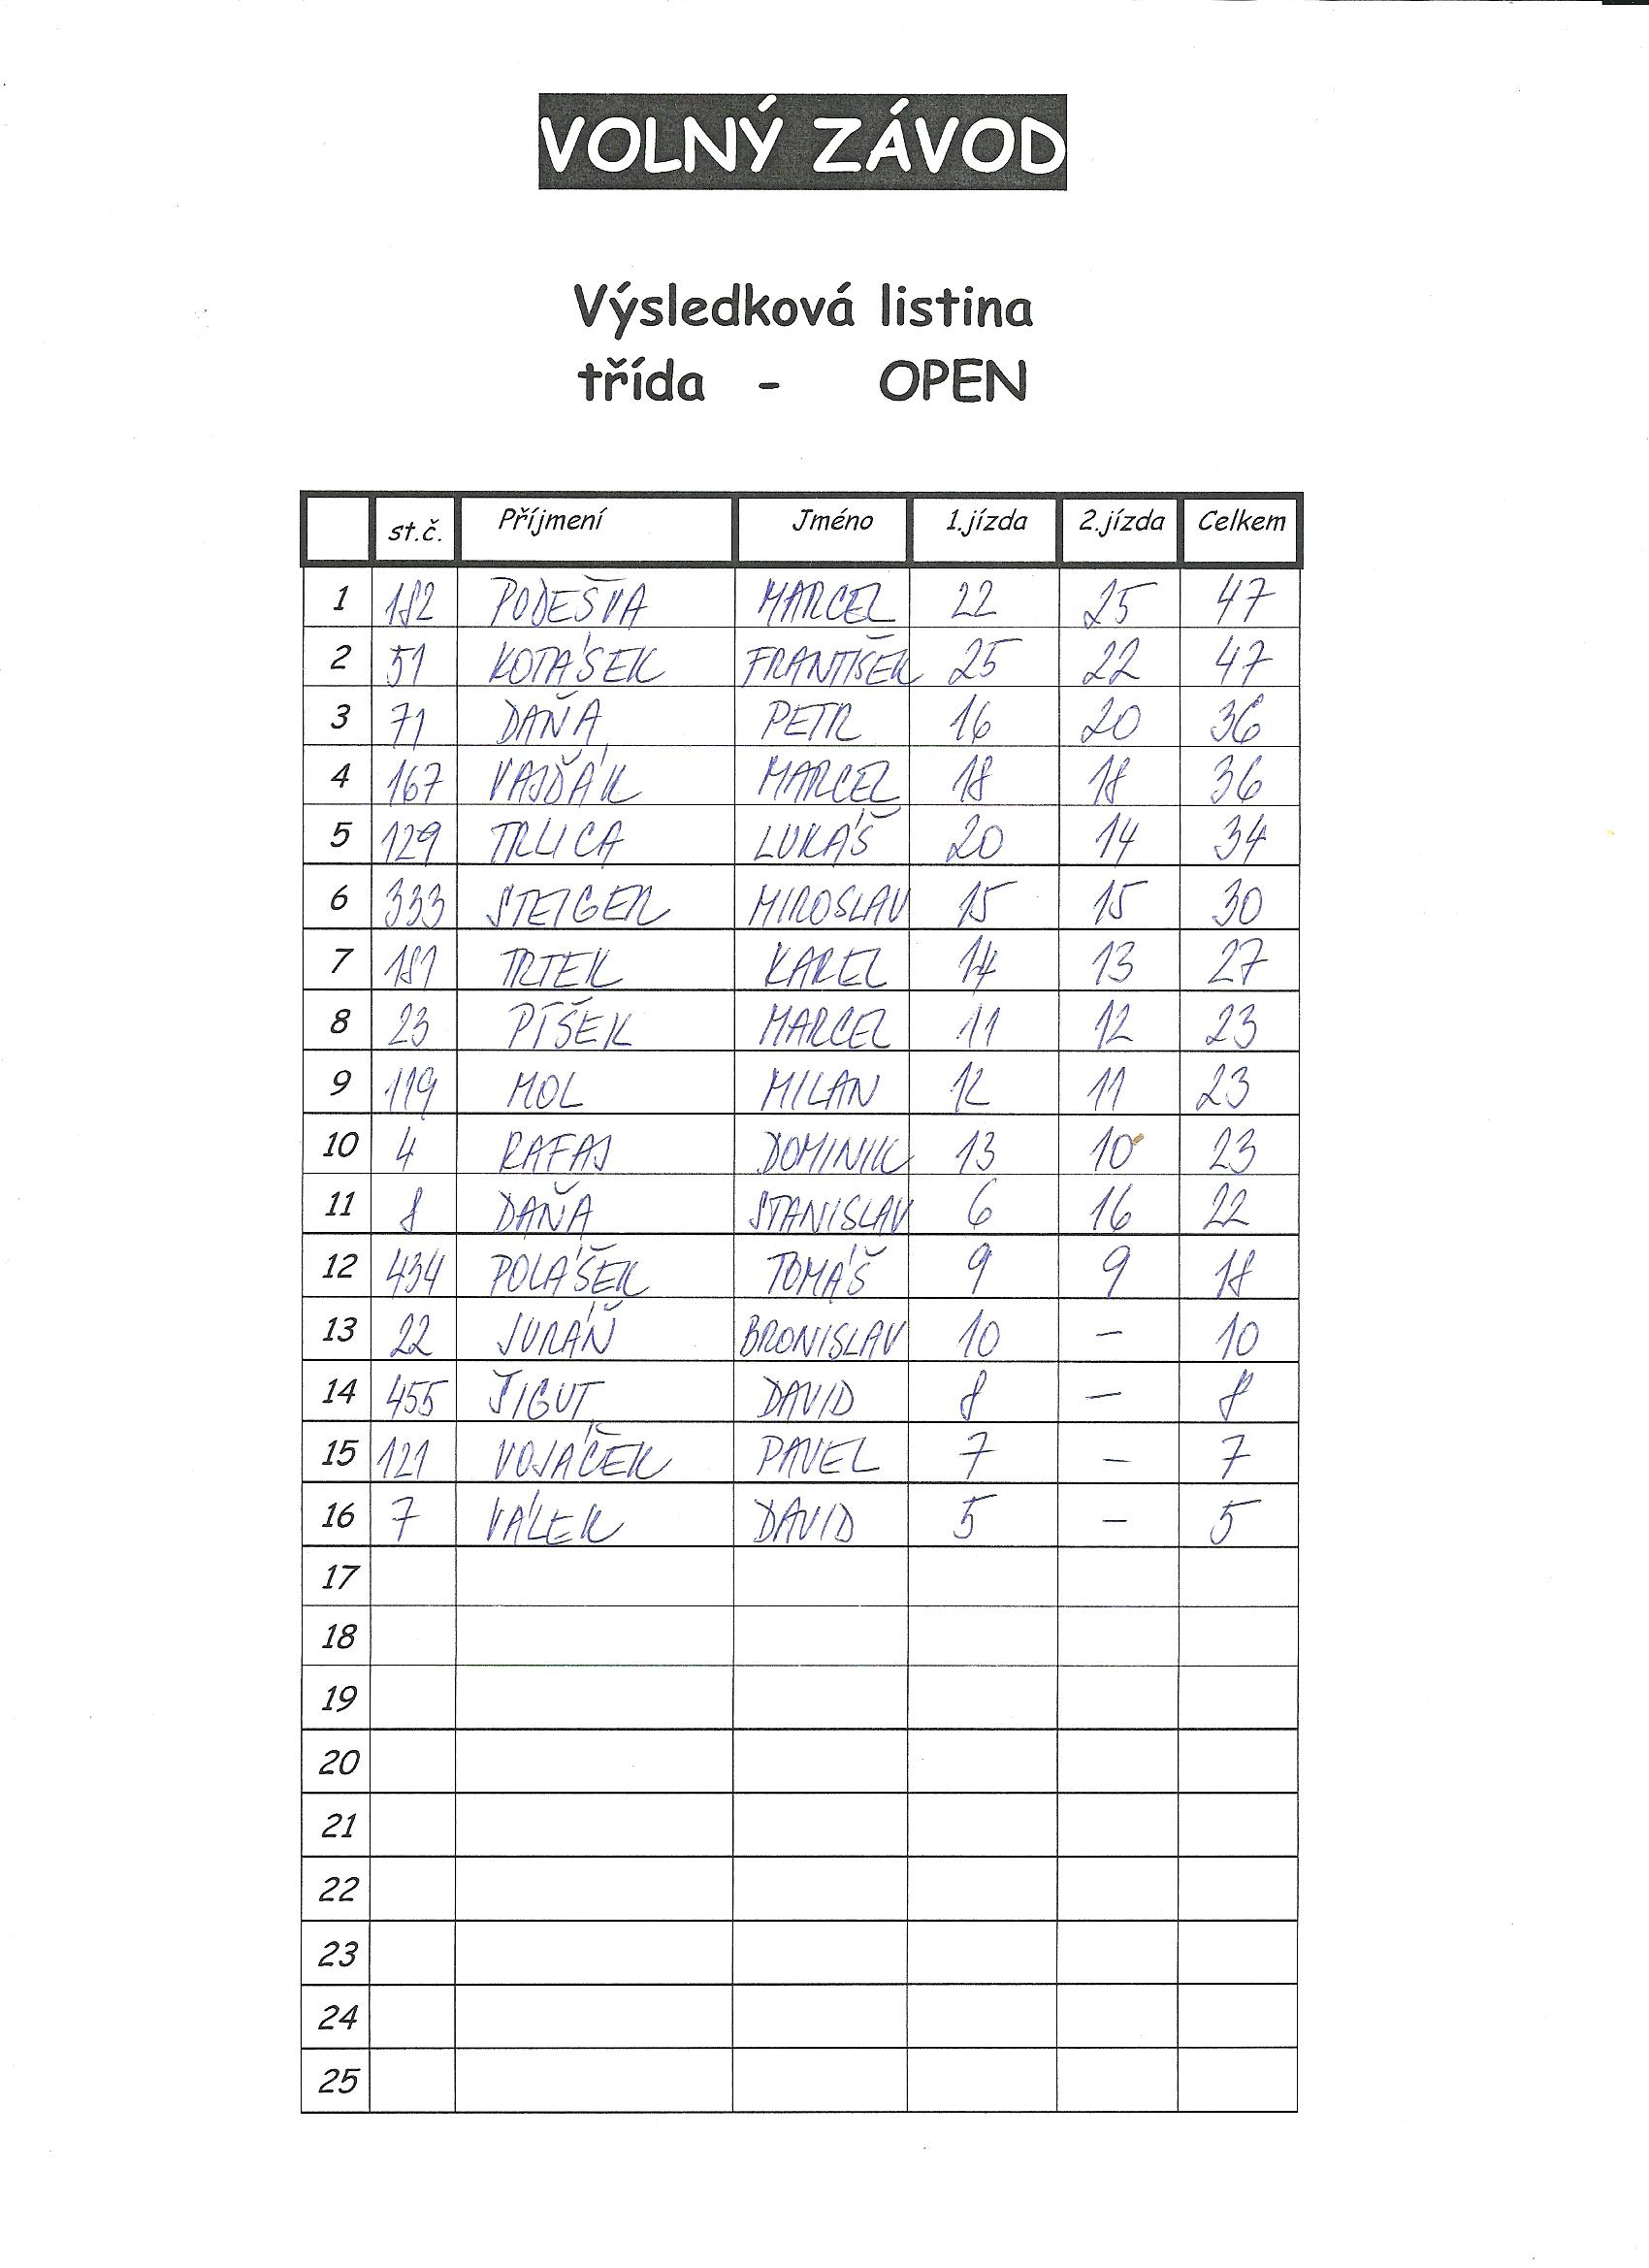 VOLNÝ ZÁVOD
Výsledková listina
třída - OPEN
st.č. Příjmení Jméno 1.jízda 2.jízda Celkem
1 182 PODEŠVA MARCEL 22 25 47
2 51 KOTÁSEK FRANTIŠEK 25 22 47
3 71 DAŇA PETR 16 20 36
4 167 VAJĎÁK MARCEL 18 18 36
5 129 TRLICA LUKÁŠ 20 14 34
6 333 STEIGER MIROSLAV 15 15 30
7 181 TRTEK KAREL 14 13 27
8 23 PÍŠEK MARCEL 11 12 23
9 119 MOL MILAN 12 11 23
10 4 RAFAJ DOMINIK 13 10 23
11 8 DAŇA STANISLAV 6 16 22
12 434 POLÁŠEK TOMÁŠ 9 9 18
13 22 JURÁŇ BRONISLAV 10 – 10
14 455 ŠIGUT DAVID 8 – 8
15 121 VOJÁČEK PAVEL 7 – 7
16 7 VÁLEK DAVID 5 – 5
17
18
19
20
21
22
23
24
25